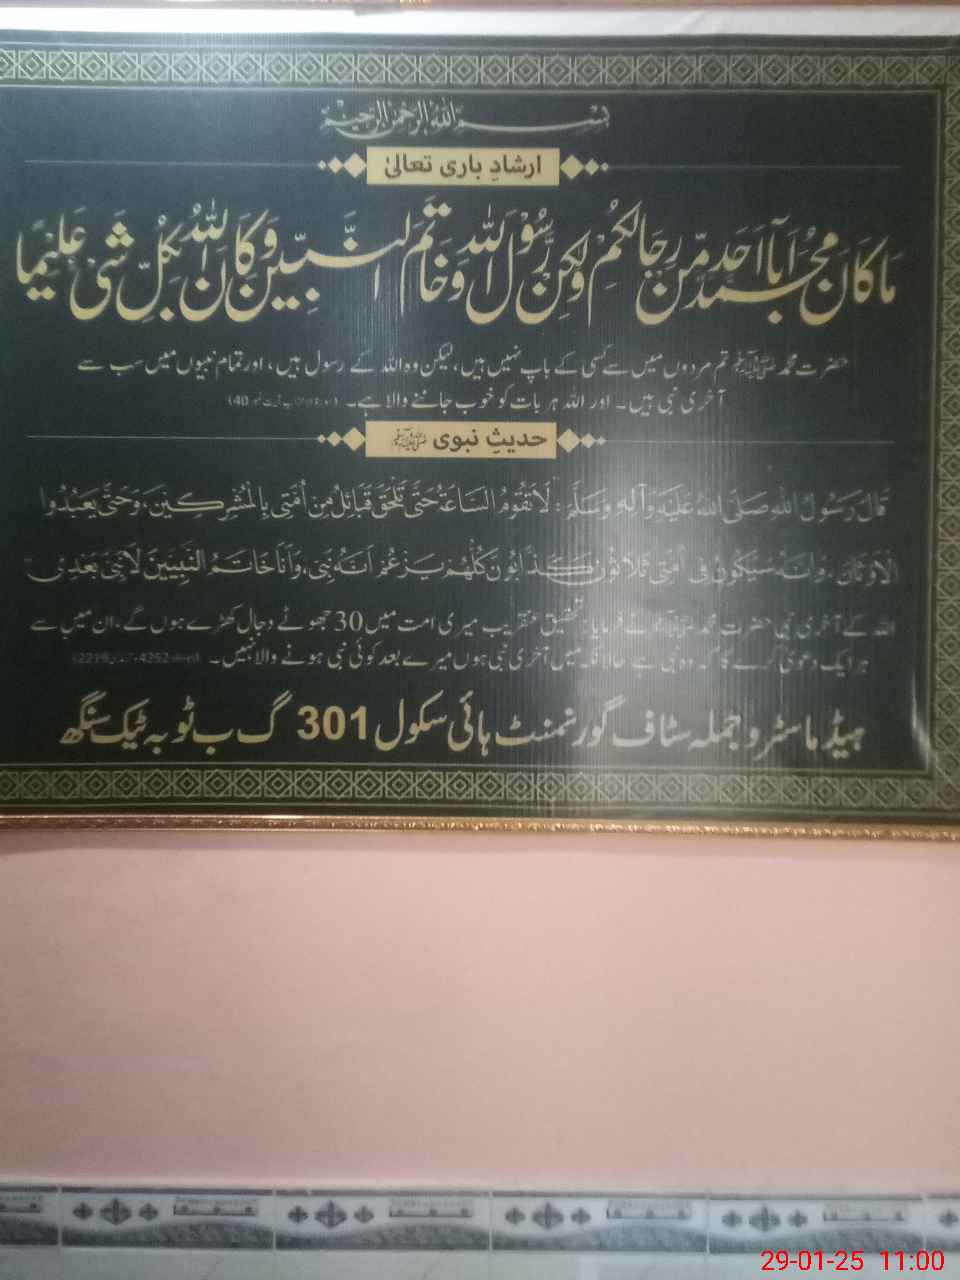 بسم الله الرحمن الرحیم
ارشادِ باری تعالیٰ
مَا كَانَ مُحَمَّدٌ اَبَآ اَحَدٍ مِّنْ رِّجَالِكُمْ وَلٰكِنْ رَّسُوْلَ اللّٰهِ وَخَاتَمَ النَّبِيّٖنَ وَكَانَ اللّٰهُ بِكُلِّ شَیْءٍ عَلِيْمًا
حضرت محمد ﷺ تم مردوں میں سے کسی کے باپ نہیں ہیں، لیکن وہ اللہ کے رسول ہیں، اور تمام نبیوں میں سب سے
آخری نبی ہیں۔ اور اللہ ہر بات کو خوب جاننے والا ہے۔ 40)
حدیثِ نبوی ﷺ
قَالَ رَسُولُ اللهِ صَلَّى اللهُ عَلَيْهِ وَآلِهِ وَسَلَّمَ: لَا تَقُومُ السَّاعَةُ حَتَّى تَلْحَقَ قَبَائِلُ مِنْ أُمَّتِي بِالْمُشْرِكِينَ، وَحَتَّى يَعْبُدُوا
الْاَوْثَانَ، وَاِنَّهُ سَيَكُونُ فِي أُمَّتِي ثَلَاثُونَ كَذَّابُونَ كُلُّهُمْ يَزْعُمُ اَنَّهُ نَبِيٌّ، وَاَنَا خَاتَمُ النَّبِيِّينَ لَا نَبِيَّ بَعْدِي
اللہ کے آخری نبی حضرت محمد ﷺ نے فرمایا: تحقیق عنقریب میری امت میں 30 جھوٹے دجال کھڑے ہوں گے، ان میں سے
ہر ایک دعویٰ کرے گا کہ وہ نبی ہے حالانکہ میں آخری نبی ہوں میرے بعد کوئی نبی ہونے والا نہیں۔ 4252 2219)
ہیڈ ماسٹر و جملہ سٹاف گورنمنٹ ہائی سکول 301 گ ب ٹوبہ ٹیک سنگھ
29-01-25 11:00